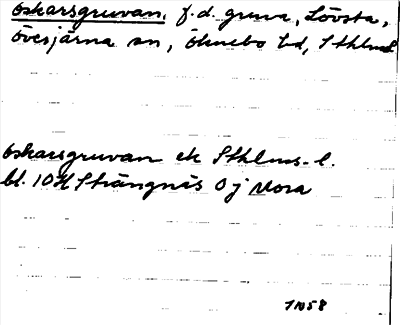 Oskarsgruvan, f.d. gruva, Lövsta,
Överjärna sn, Öknebo hd, Sthlms l
Oskarsgruvan ek Sthlms l.
bl. 10H Strängnäs 0 j Mora
1N58